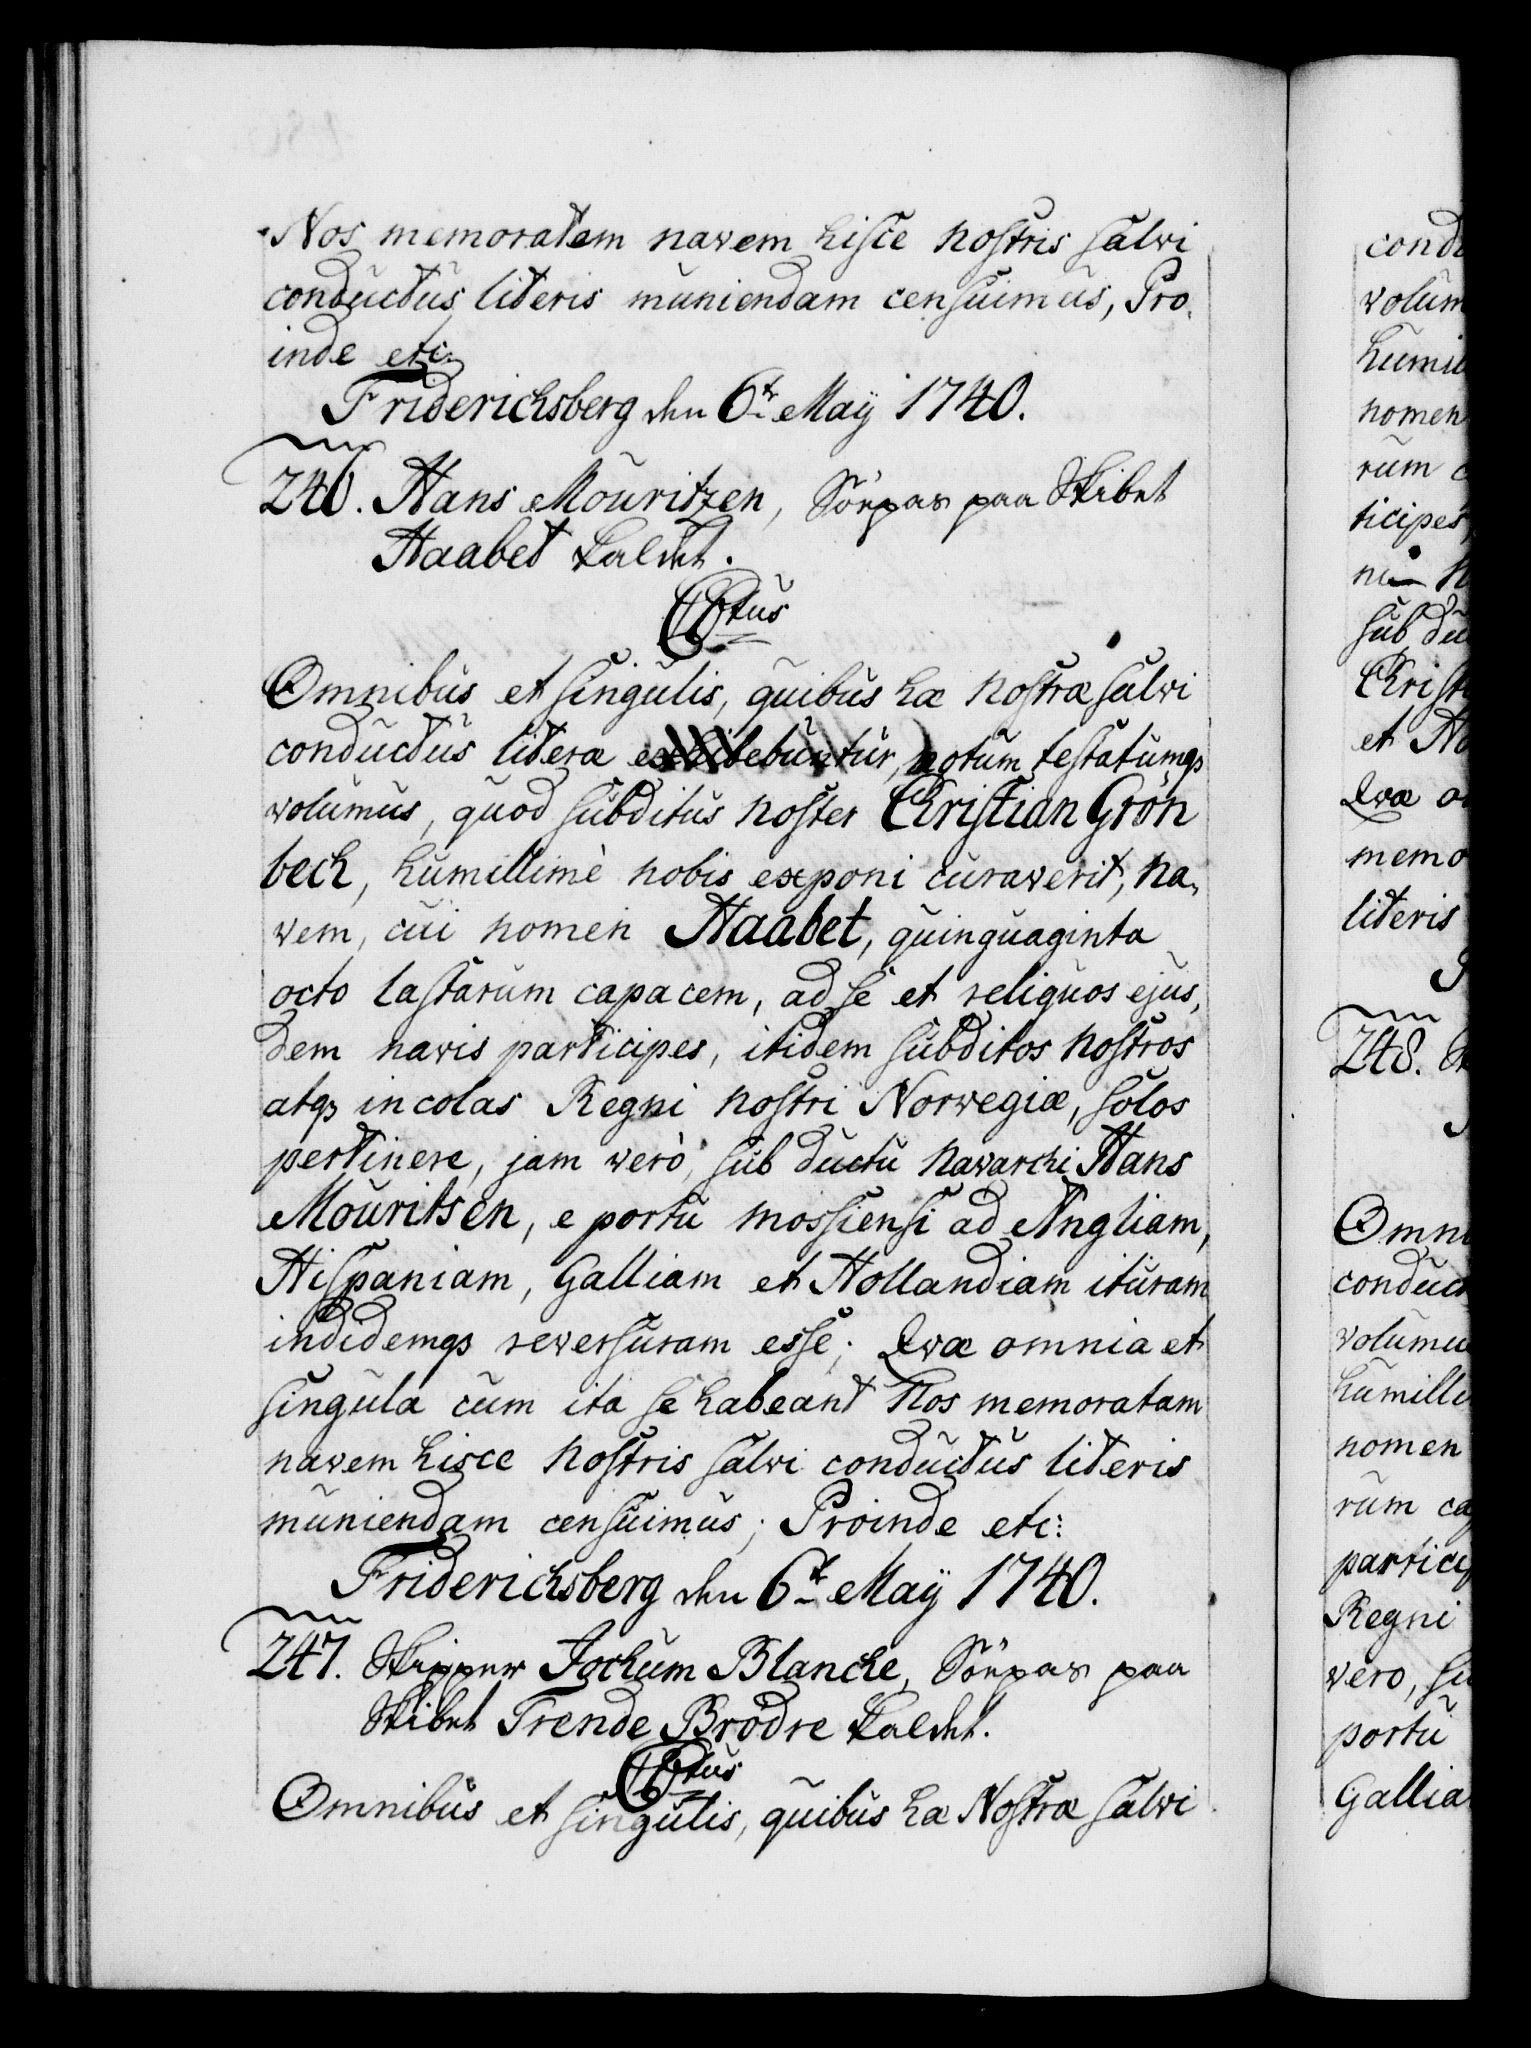 Nos memoratem navem hisce nostris salvi
conductus literis muniendam censuimus, Pro,
inde etc:
Friderichsberg den 6te Maÿ 1740.
246. Hans Mouritzen, Söepas paa Skibet
Haabet kaldet.
C6tus
Omnibus et singulis, quibus hæ nostræ salvi
conductus literæ exhibebuntur, notum testatumqs
volumus, quod subditus noster Christian Grön
bech, humillimè nobis exponi curaverit, na,
vem, cui nomen Haabet, quinquaginta
octo lastarum capacem, ad se et reliquos ejus,
dem navis participes, itidem subditos nostros
atqs incolas Regni nostri Norwegiæ, solos
pertinere, jam verò, sub ductu navarchi Hans
Mouritsen, e portu mossiensi ad Angliam,
Hispaniam, Galliam et Hollandiam ituram
indidemqs reversuram esse; Qvæ omnia et
singula cum ita se habeant Nos memoratam
navem hisce nostris salvi conductus literis
muniendam censuimus; Proinde etc:
Friderichsberg den 6te Maÿ 1740.
247. Skipper Jochum Blanche, Söepas paa
Skibet Trende Brödre kaldet.
C6tus
Omnibus et singulis, quibus hæ Nostræ salvi
volum
nomen
rum c
ticipes,
sub du
Christ
et No
Qvæ o
memo
literis
248. Sk
Omni
conduct
volumu
humilli
nomen
rum ca
particip
Regni
vero, su
portu
Gallia